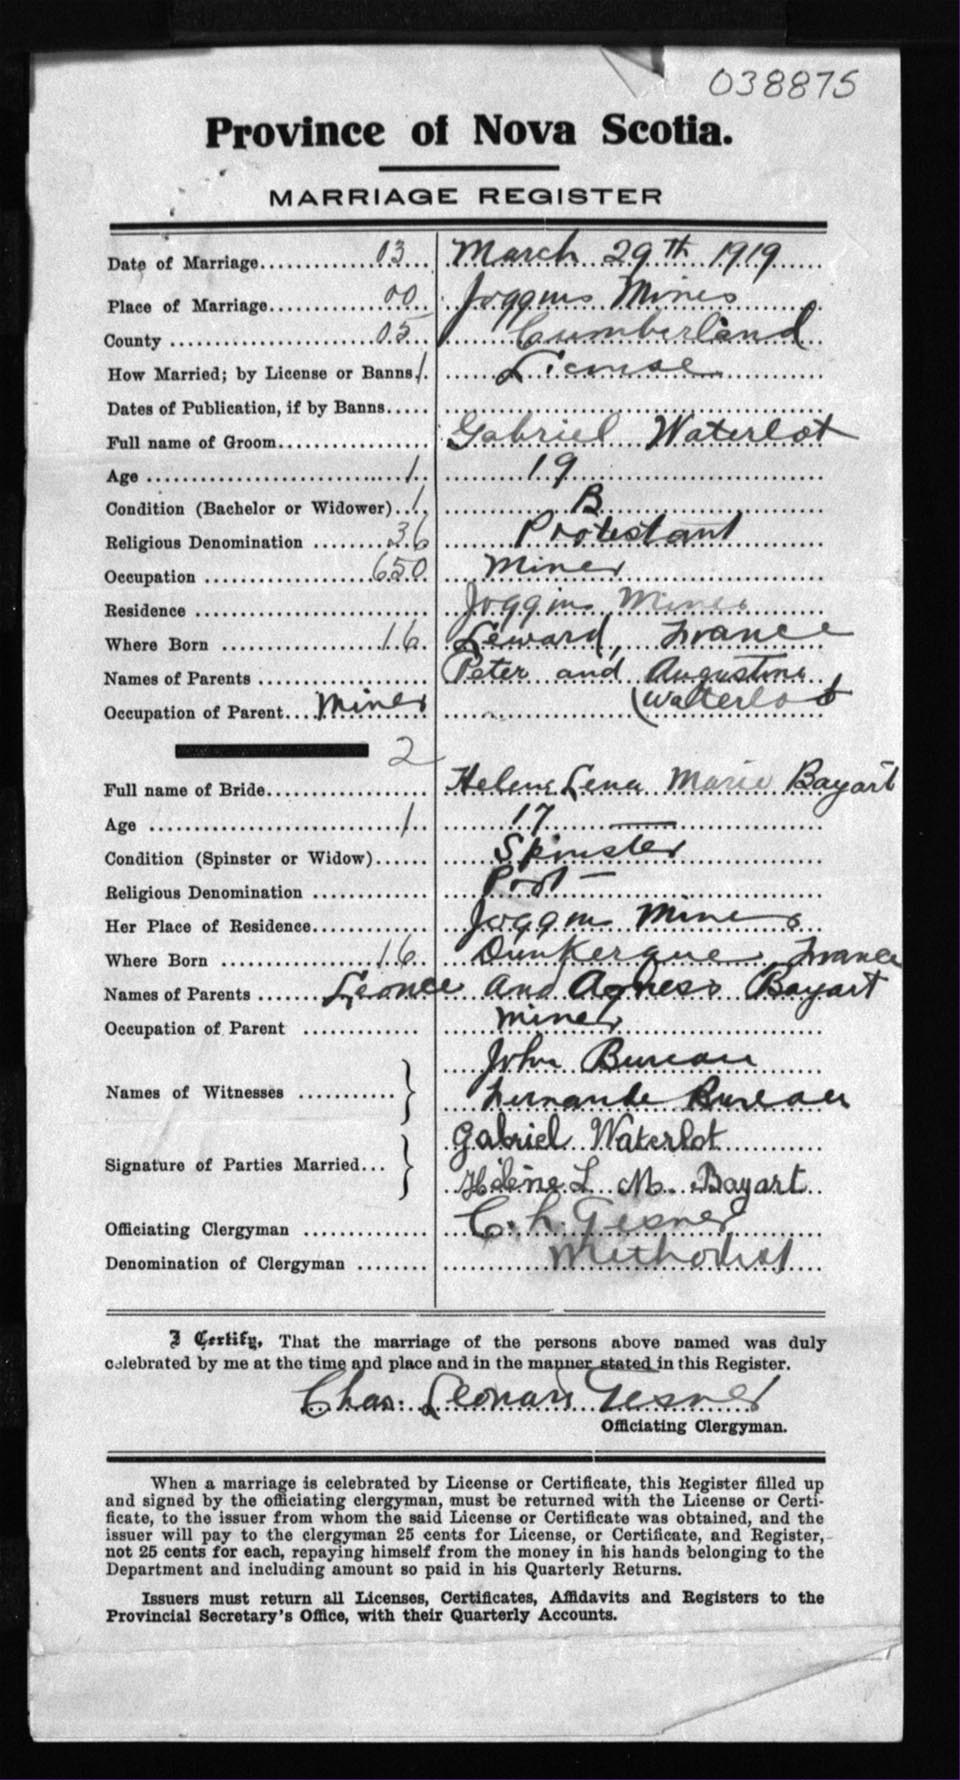 038875
Province of Nova Scotia.
MARRIAGE REGISTER
Date of Marriage 03 March 29th 1919
Place of Marriage 00 Joggins Mines
County 05 Cumberland
How Married; by License or Banns 1 License
Dates of Publication, if by Banns
Full name of Groom Gabriel Waterlot
Age 1 19
Condition (Bachelor or Widower) 1 B
Religious Denomination 36 Protestant
Occupation 650 Miner
Residence Joggins Mines
Where Born 16 Leward, France
Names of Parents Peter and Augustine
Occupation of Parent Miner (Waterlot
2
Full name of Bride Helene Lena Marie Bayart
Age 1 17
Condition (Spinster or Widow) Spinster
Religious Denomination Prot
Her Place of Residence Joggins Mines
Where Born 16 Dunkerque, France
Names of Parents Leonce and Agness Bayart
Occupation of Parent miner
John Bureau
Names of Witnesses }
Fernande Bureau
Gabriel Waterlot
Signature of Parties Married }
Hélène L M. Bayart
Officiating Clergyman C. L. Gesner
Denomination of Clergyman Methodist
I Certify, That the marriage of the persons above named was duly
celebrated by me at the time and place and in the manner stated in this Register.
Chas. Leonard Gesner
Officiating Clergyman.
When a marriage is celebrated by License or Certificate, this Register filled up
and signed by the officiating clergyman, must be returned with the License or Certi-
ficate, to the issuer from whom the said License or Certificate was obtained, and the
issuer will pay to the clergyman 25 cents for License, or Certificate, and Register,
not 25 cents for each, repaying himself from the money in his hands belonging to the
Department and including amount so paid in his Quarterly Returns.
Issuers must return all Licenses, Certificates, Affidavits and Registers to the
Provincial Secretary's Office, with their Quarterly Accounts.